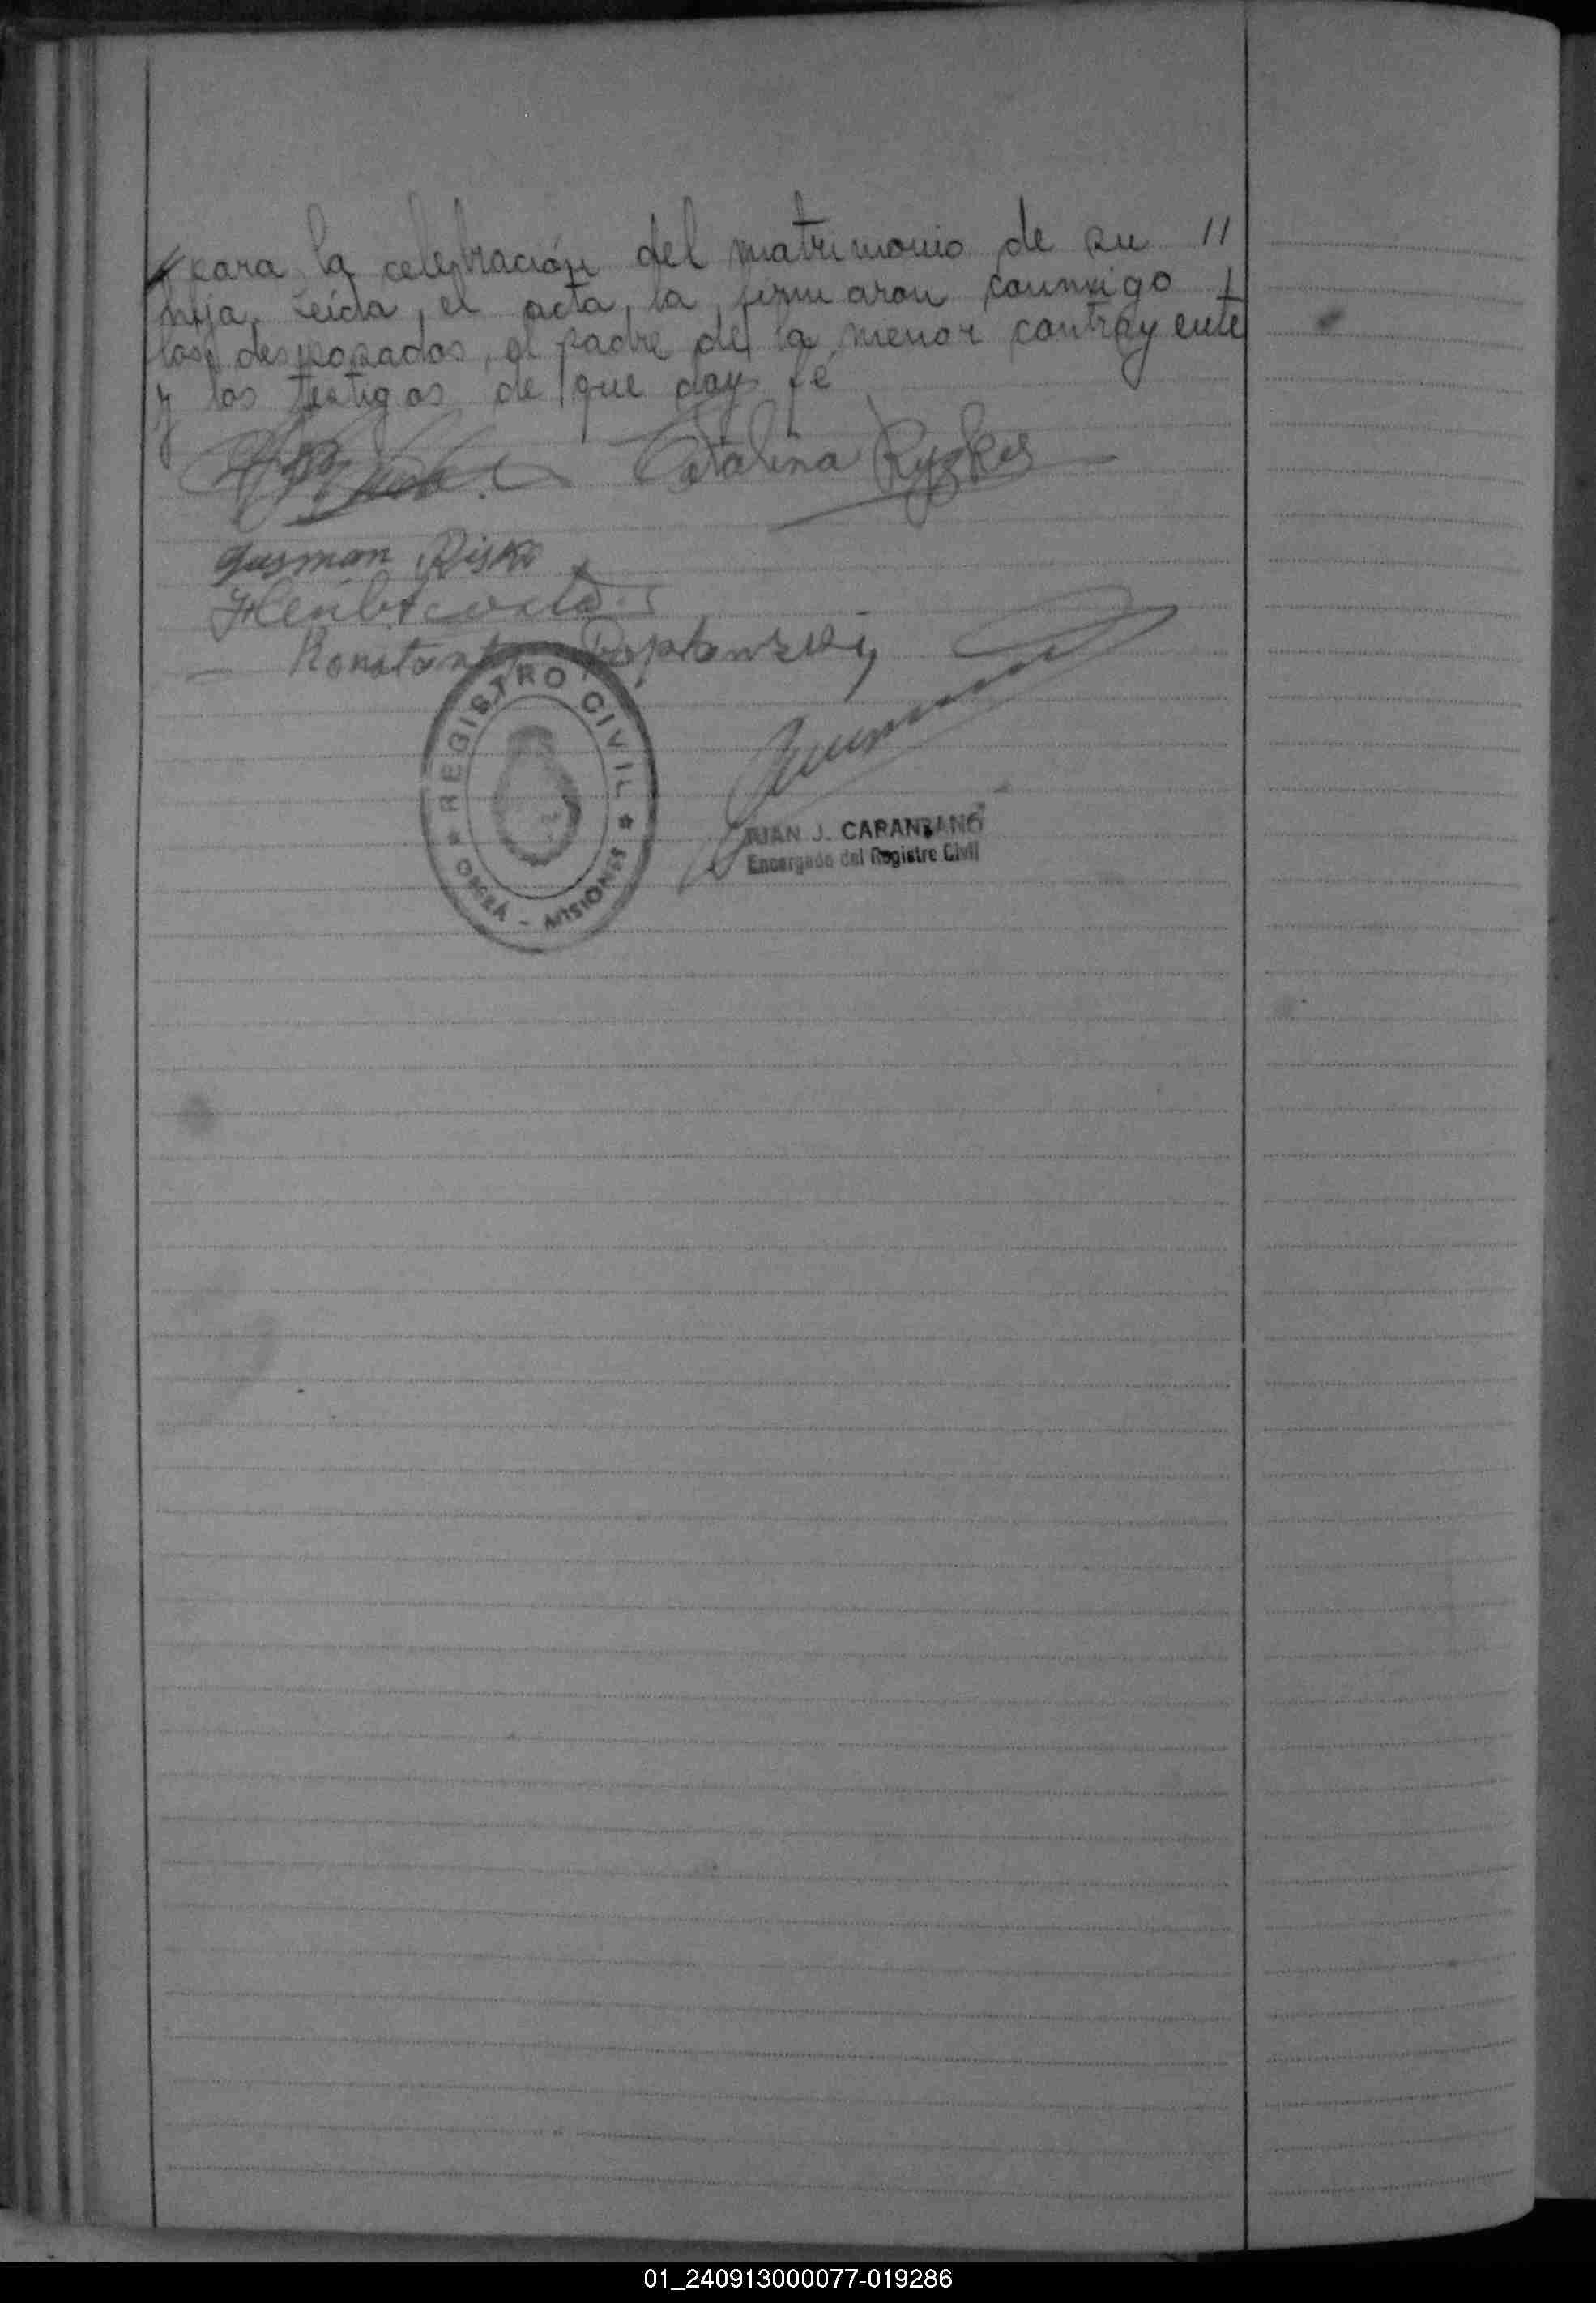 para la celebración del matrimonio de su //
hija, leída el acta, la firmaron conmigo
los desposados, el padre de la menor contrayente
y los testigos de que doy fé
Catalina Ryskes
Gusman Risko
Konstanty
REGISTRO CIVIL
OBERÁ - MISIONES
JUAN J. CARANZANO
Encargado del Registro Civil
01_240913000077-019286